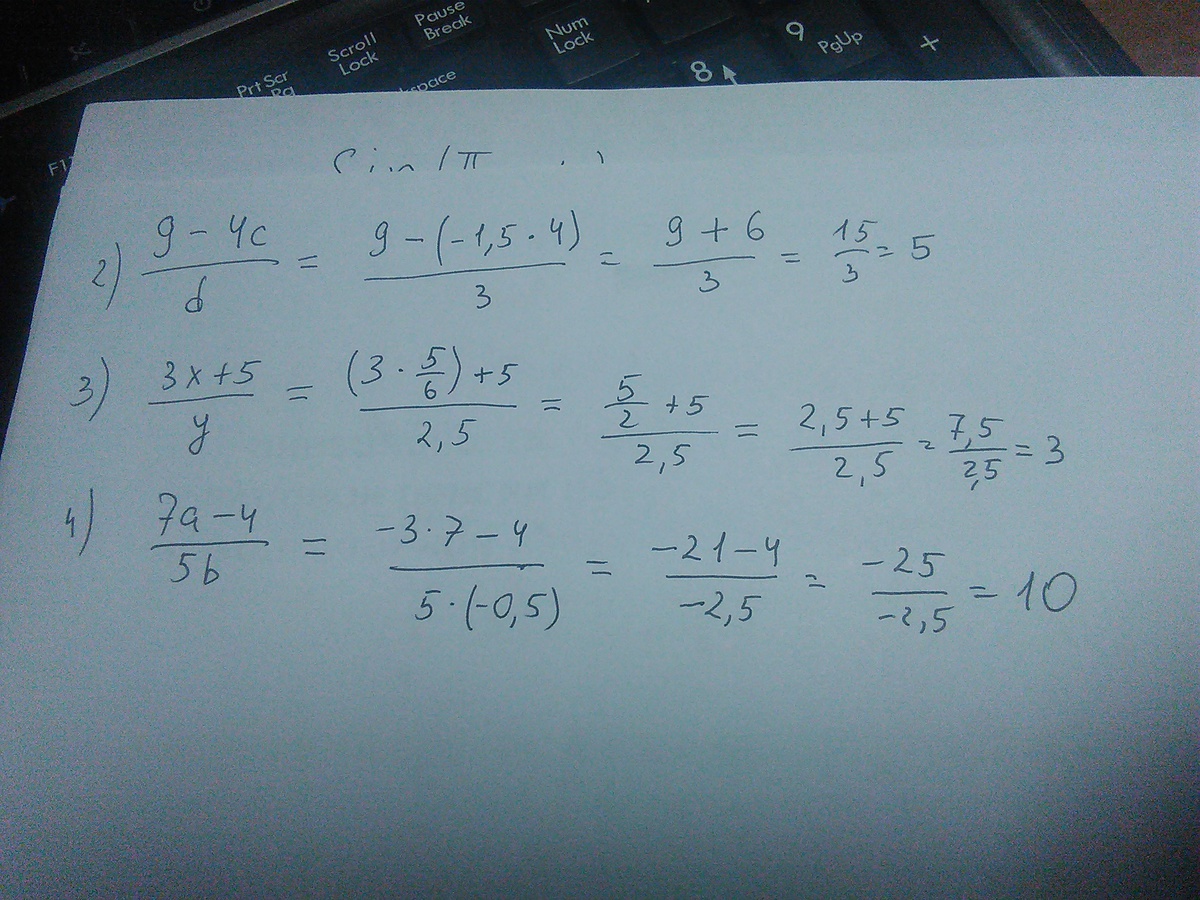 Pause
Break
Scroll
Lock
Num
Lock
9 PgUp +
8
Prt Sc
2) (9 - 4c)/d = (9 - (-1,5 · 4))/3 = (9 + 6)/3 = 15/3 = 5
3) (3x + 5)/y = ((3 · 5/6) + 5)/2,5 = (5/2 + 5)/2,5 = (2,5 + 5)/2,5 = 7,5/2,5 = 3
4) (7a - 4)/5b = (-3 · 7 - 4)/(5 · (-0,5)) = (-21 - 4)/-2,5 = -25/-2,5 = 10